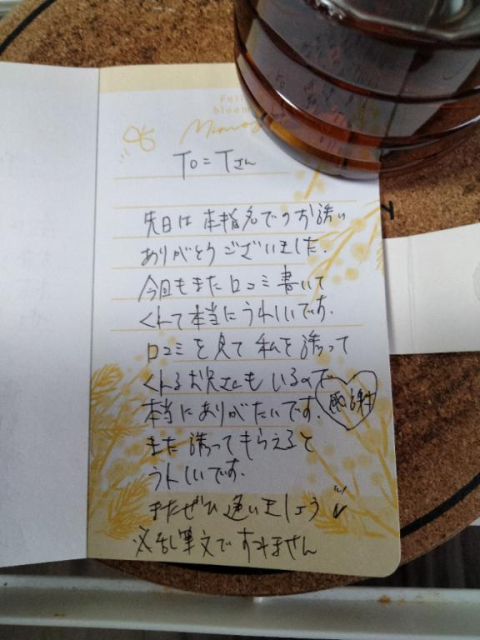 Full
bloom
Mimosa
To = Tさん
先日は本指名でのお誘い
ありがとうございました.
今回もまた口コミ書いて
くれて本当にうれしいです.
口コミを見て私を誘って
くれるお客さまもいるので
本当にありがたいです.
感謝
また誘ってもらえると
うれしいです.
またぜひ逢いましょう
※乱筆文ですみません